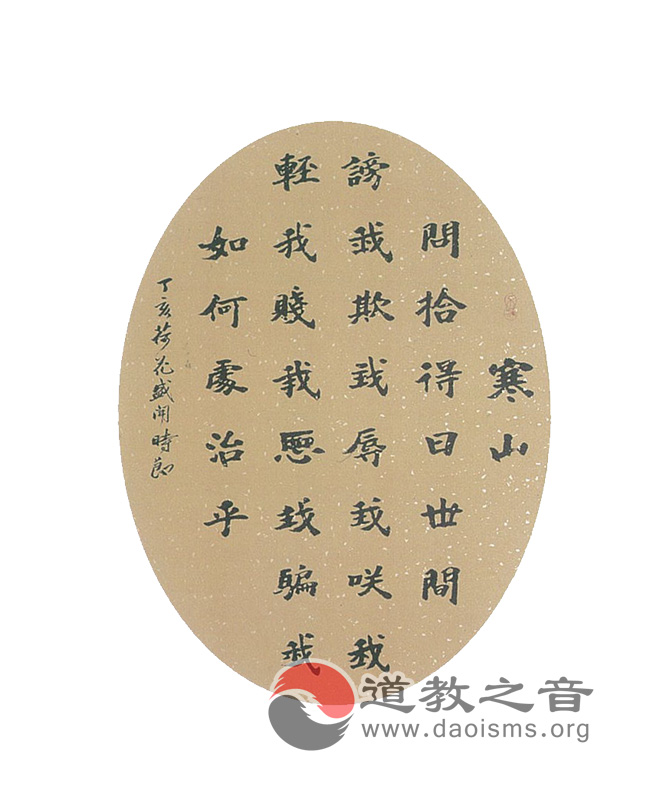 寒山
問拾得曰世間
謗我欺我辱我咲我
輕我賤我惡我騙我
如何處治乎
丁亥荷花盛開時節
道教之音
www.daoisms.org